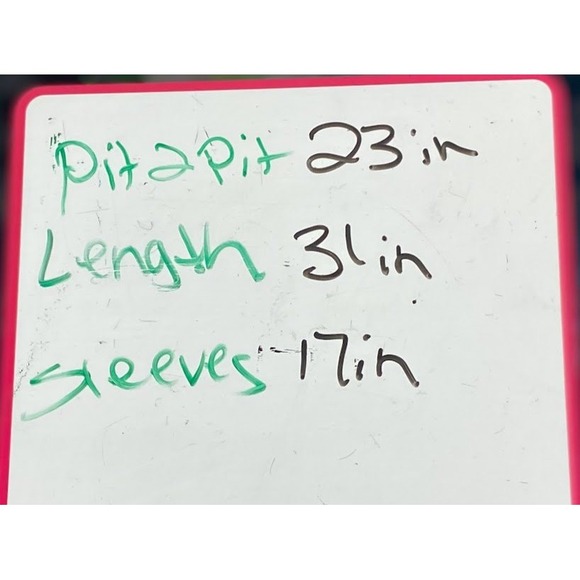 Pit 2 Pit 23in
Length 31in
Sleeves 17in